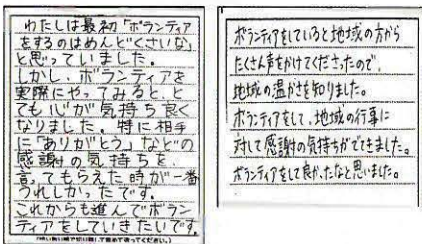 わたしは最初「ボランティア
をするのはめんどくさいな」
と思っていました。
しかし、ボランティアを
実際にやってみると、と
ても心が気持ち良く
なりました。特に相手
に「ありがとう」などの
感謝の気持ちを
言ってもらえた時が一番
うれしかったです。
これからも進んでボラン
ティアをしていきたいです。
ボランティアをしていると地域の方から
たくさん声をかけてくださったので、
地域の温かさを知りました。
ボランティアをして、地域の行事に
対して感謝の気持ちがでてきました。
ボランティアをして良かったなと思いました。